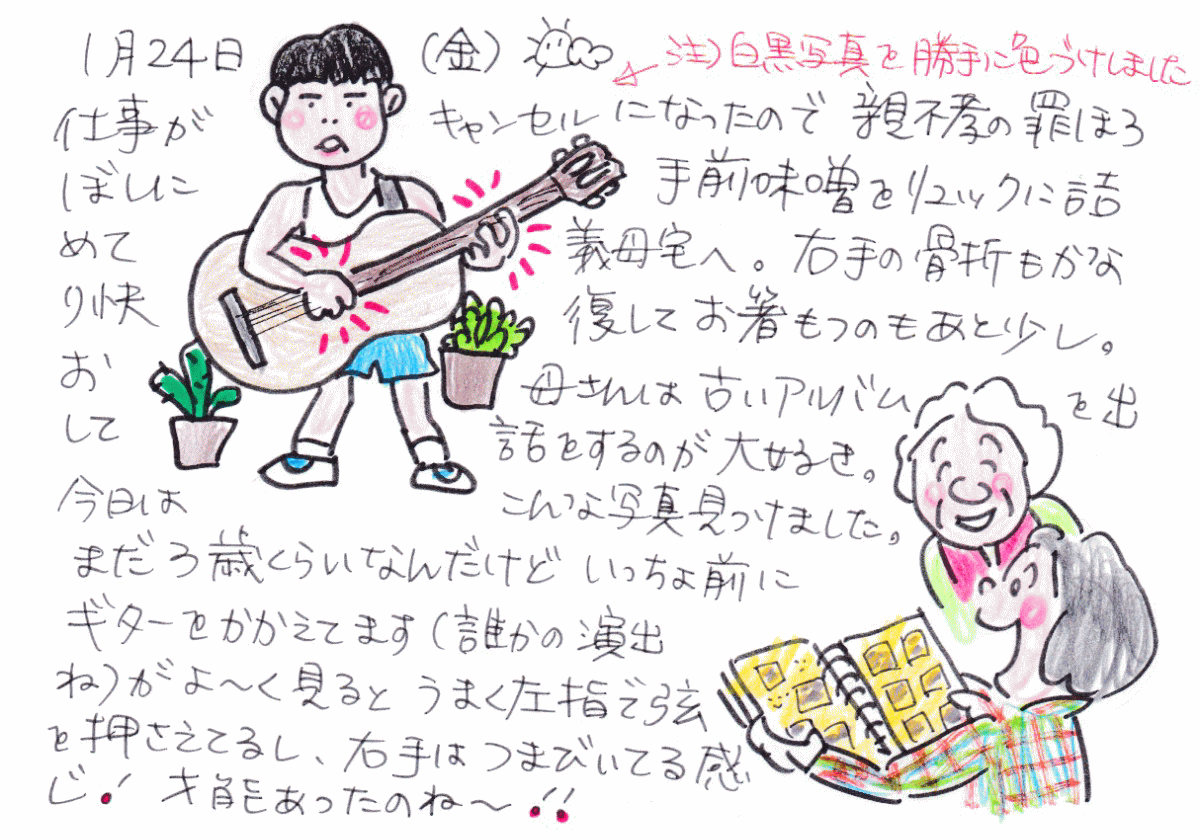 1月24日（金）
注)白黒写真を勝手に色づけしました
仕事がキャンセルになったので親不孝の罪ほろ
ぼしに手前味噌をリュックに詰
めて義母宅へ。右手の骨折もかな
り快復してお箸もつのもあと少し。
お母さんは古いアルバムを出
して話をするのが大好き。
今日はこんな写真見つけました。
まだ3歳くらいなんだけどいっちょ前に
ギターをかかえてます(誰かの演出
ね)がよ〜く見るとうまく左指で弦
を押さえてるし、右手はつまびいてる感
じ!才能あったのね〜!!